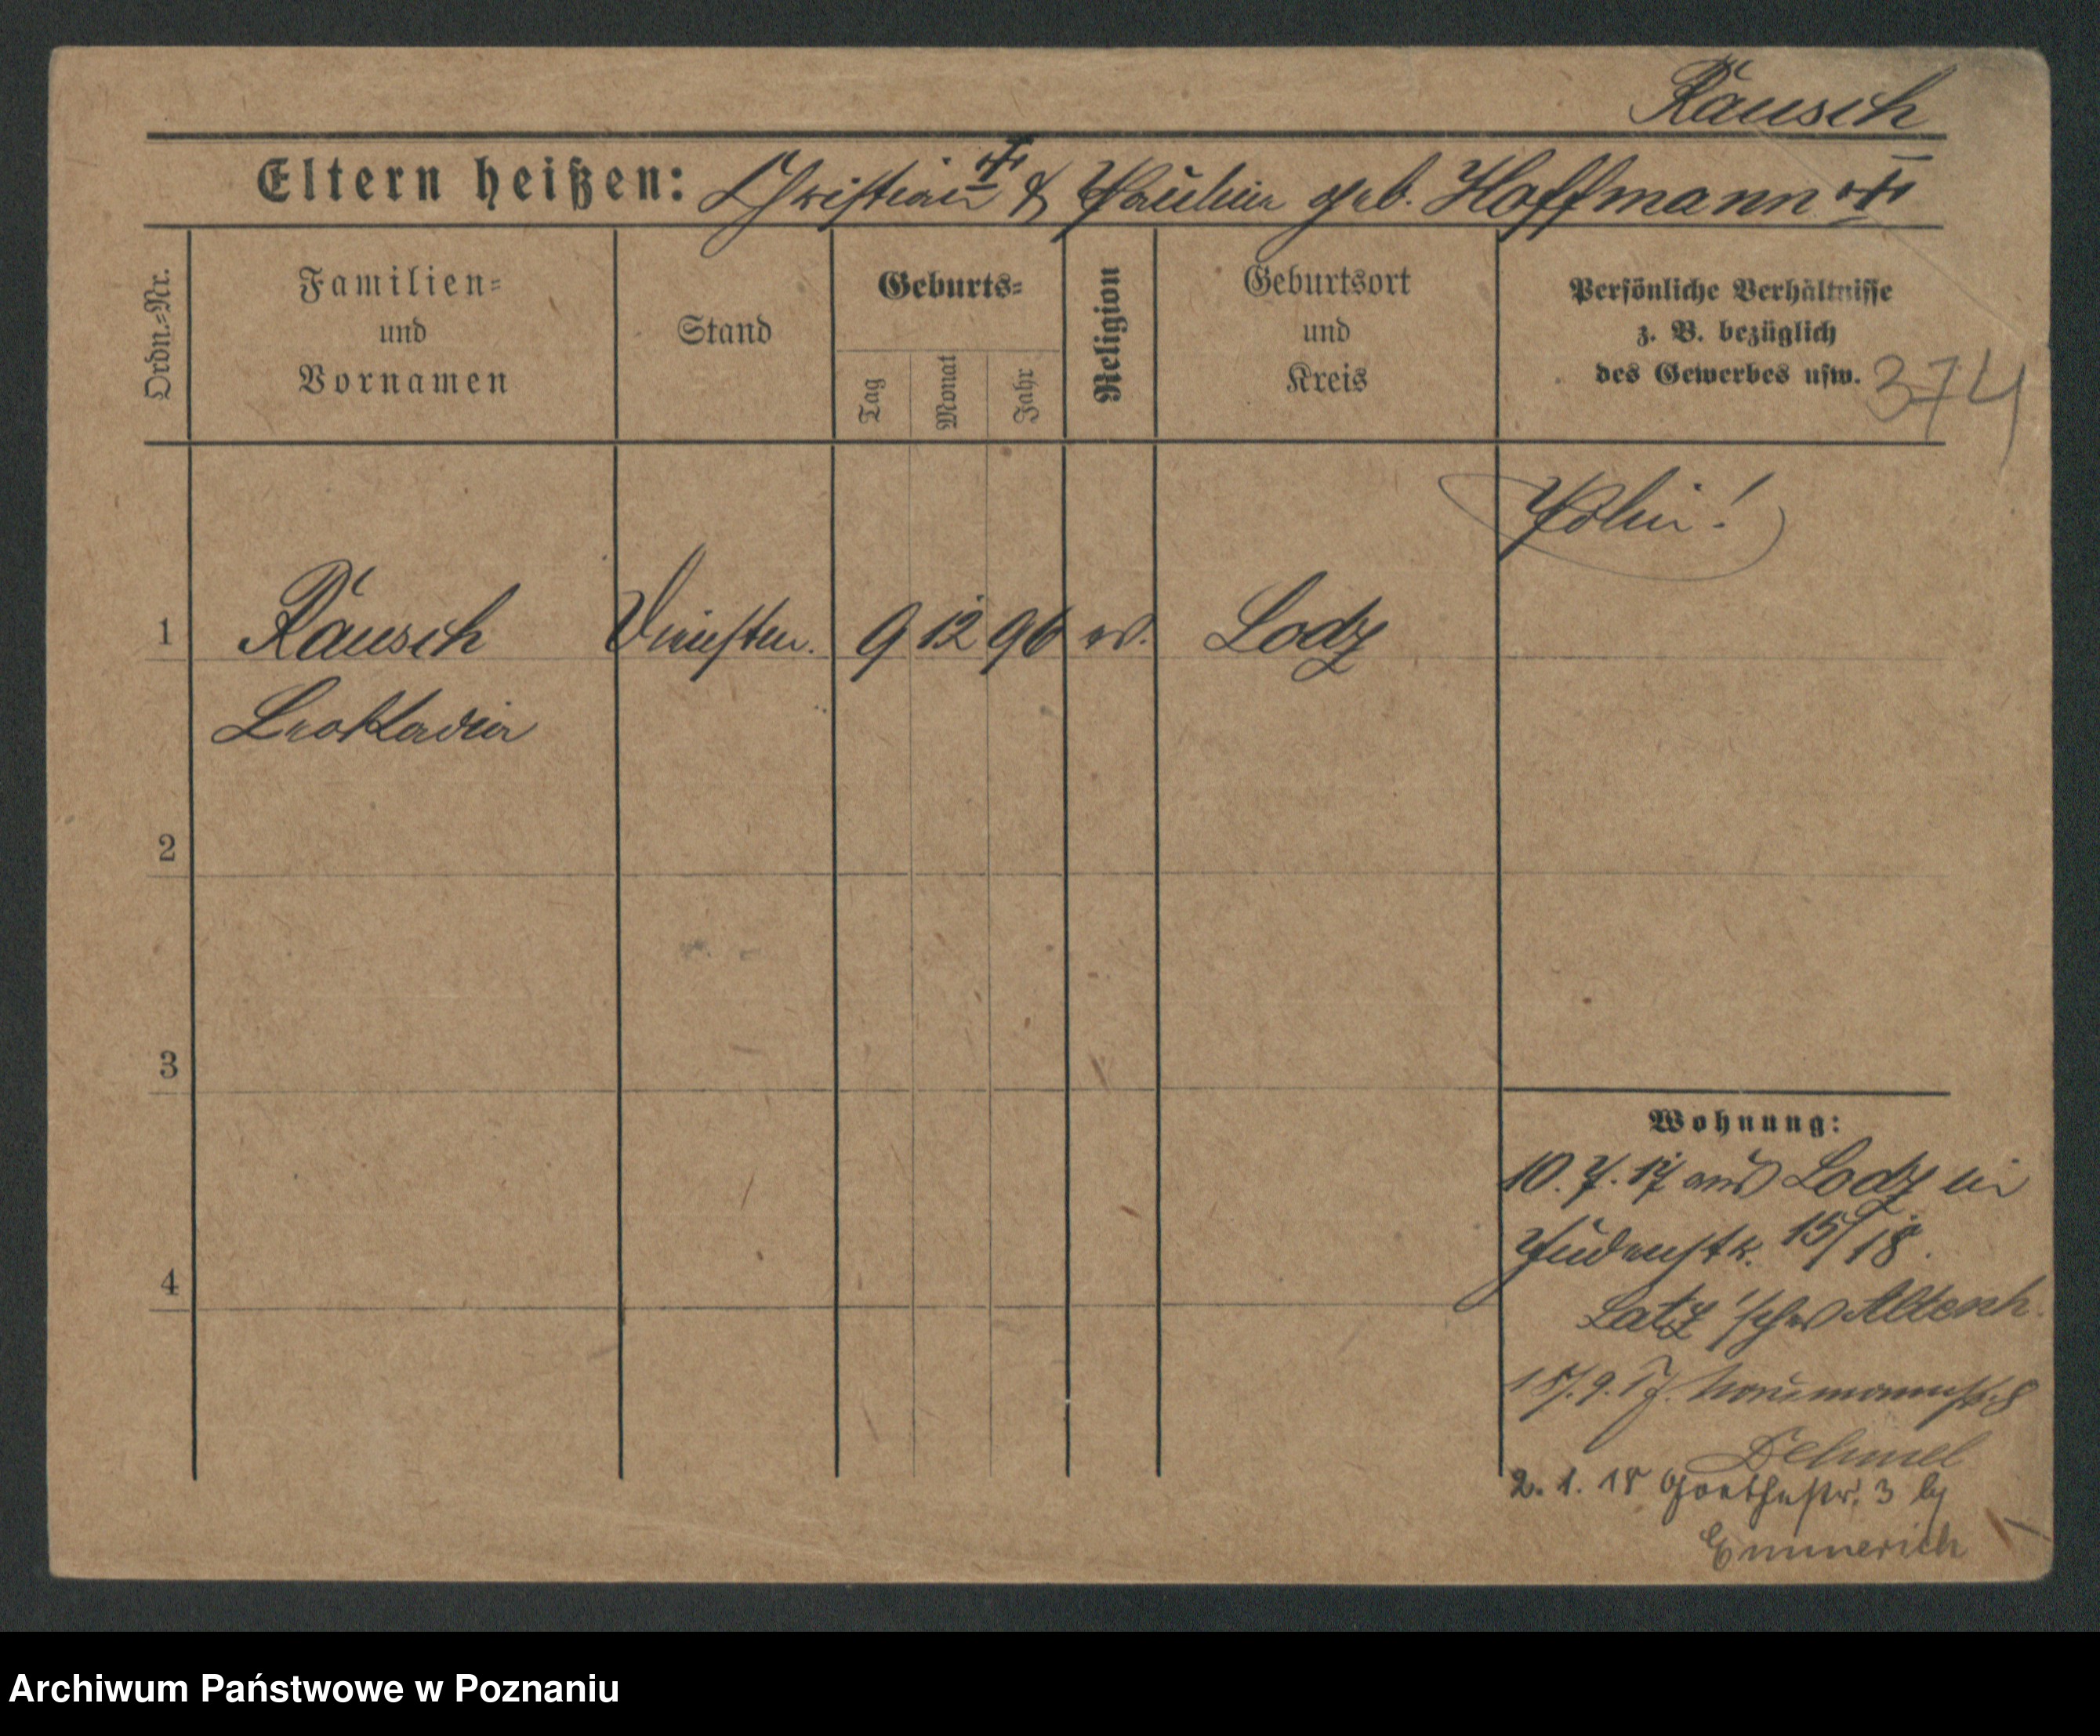 Räusch
Eltern heißen: Christian & Pauline geb. Hoffmann
Ordn.-Nr.
Familien-
und
Vornamen
Stand
Geburts-
Tag
Monat
Jahr
Religion
Geburtsort
und
Kreis
Persönliche Verhältnisse
z. B. bezüglich
des Gewerbes usw.
374
Polin!
1 Räusch 9 12 96 ev. Lodz
Leokadia
2
3
4
Wohnung:
10. 7. 17 aus Lodz in
Judenstr. 15/18.
Latz'sches Altersh.
9. 17.
Dehmel
2. 1. 18 Goethestr. 3 by
Emmerich
Archiwum Państwowe w Poznaniu